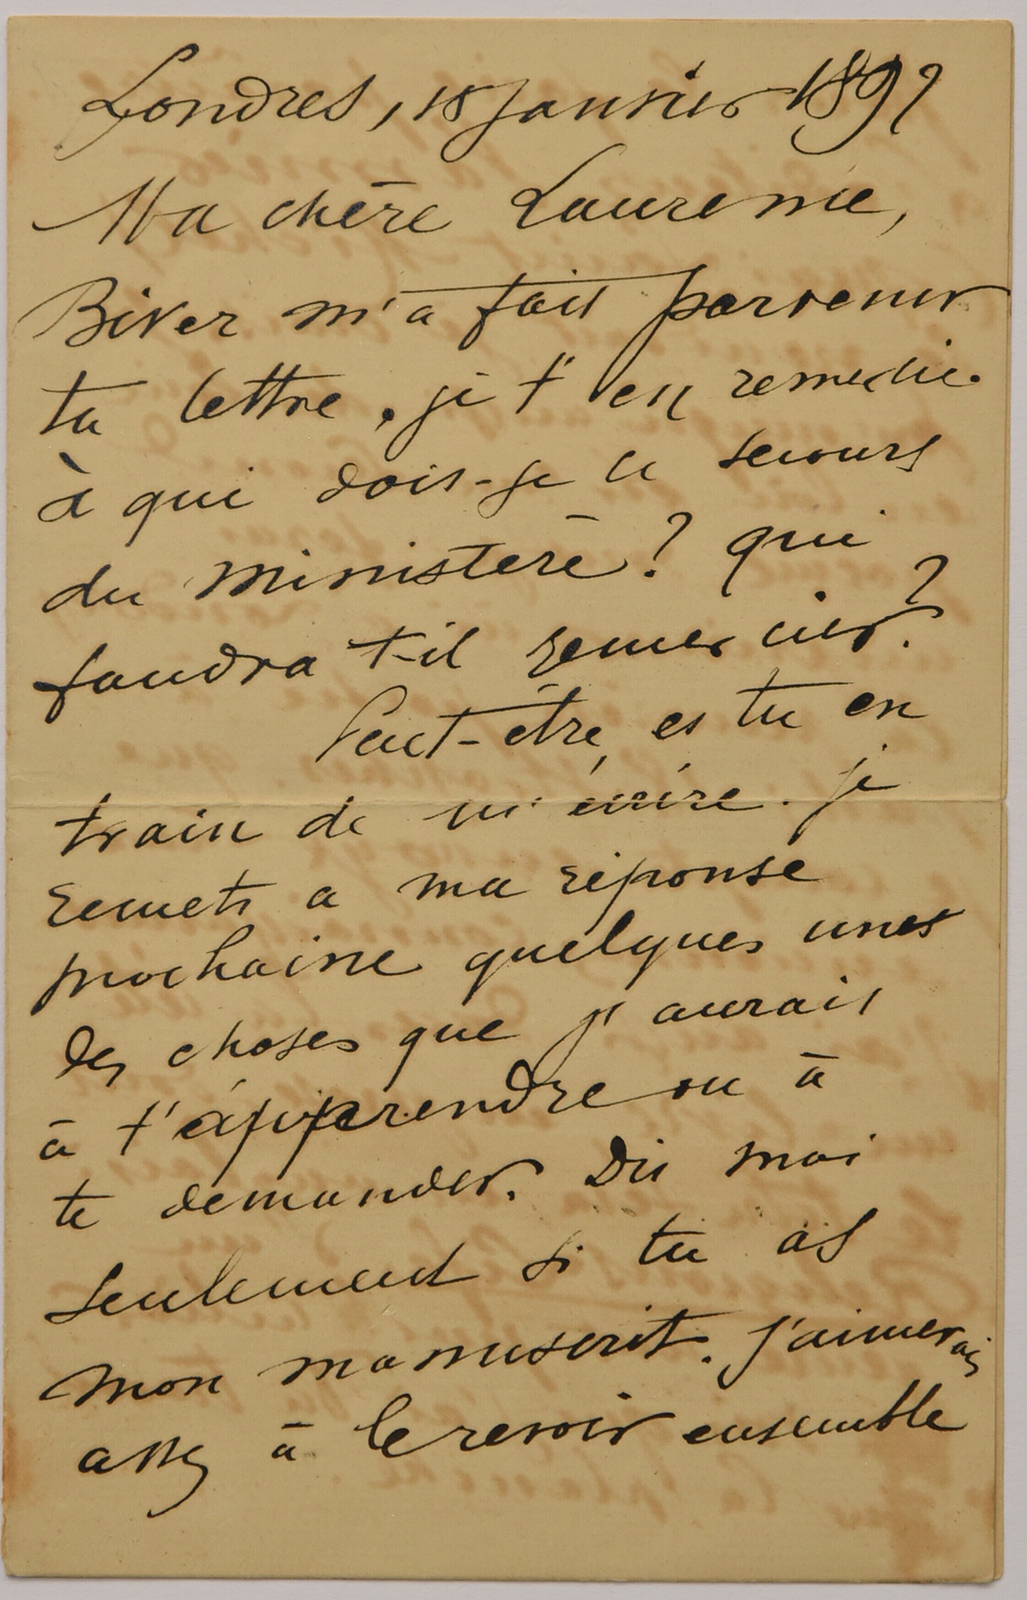 Londres, 18 janvier 1897
Ma chère Laurence,
Biver m'a fait parvenir
ta lettre, je t'en remercie.
à qui dois-je le secours
du ministère? qui
faudra t-il remercier?
Peut-être es tu en
train de m'écrire. je
remets a ma réponse
prochaine quelques unes
des choses que j'aurais
à t'apprendre ou à
te demander. Dis moi
seulement si tu as
mon manuscrit. J'aimerais
assez à le revoir ensemble